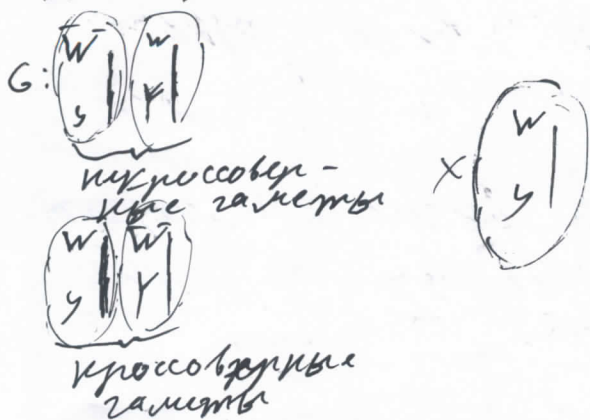 G:
W w
y Y
некроссовер-
ные гаметы
X
w
y
w W
y Y
кроссоверные
гаметы